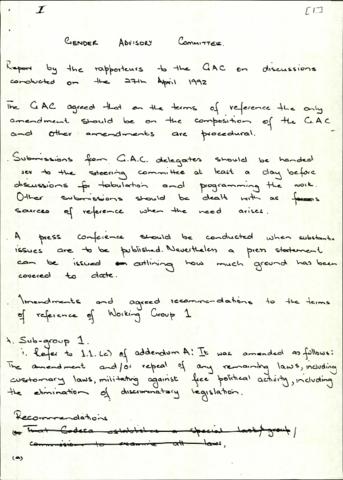 I [1]
GENDER ADVISORY COMMITTEE.
Report by the rapporteurs to the GAC on discussions
conducted on the 27th April 1992
The GAC agreed that on the terms of reference the only
amendment should be on the composition of the GAC
and other amendments are procedural.
Submissions from G.A.C. delegates should be handed
to the steering committee at least a day before
discussions for tabulation and programming the work.
Other submissions should be dealt with as
sources of reference when the need arises.
A press conference should be conducted when substant.
issues are to be published. Nevertheless a press statement
can be issued outlining how much ground has been
covered to date.
Amendments and agreed recommendations to the terms
of reference of Working Group 1
Sub-group 1.
i. Refer to 1.1.(c) of addendum A: It was amended as follows:
The amendment and/or repeal of any remaining laws, including
customary laws, militating against free political activity, including
the elimination of discriminatory legislation.
Recommendations
That Codesa establishes a special task/group/
commission to examine all laws,
(a)